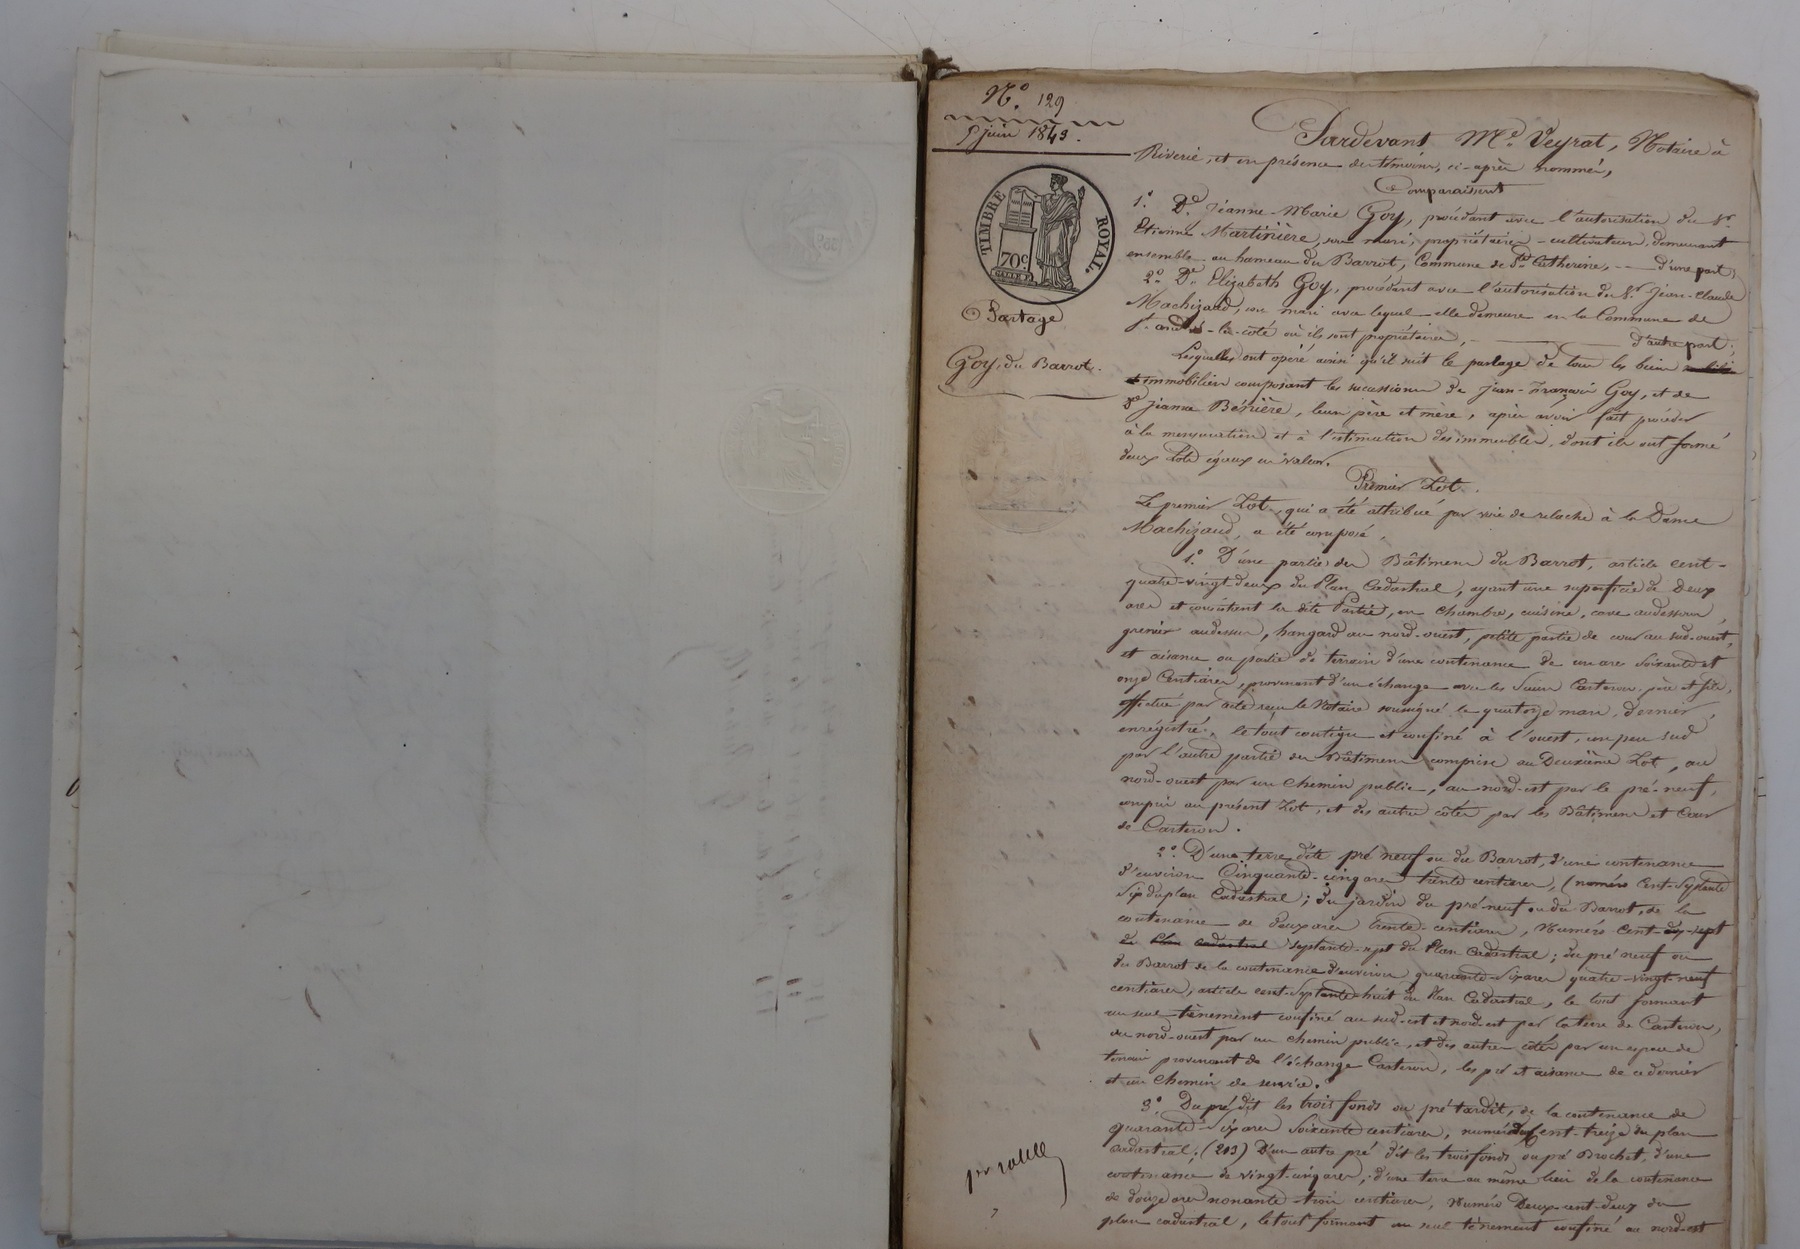 N.° 129
9 juin 1843.
Pardevant M.e Veyrat, Notaire à
Riverie, et en présence des témoins, ci-après nommés,
Comparaissent
TIMBRE ROYAL.
70c
1.° D.e Jeanne-Marie Goy, procédant avec l'autorisation du Sr.
Etienne Martinière, son mari, propriétaires-cultivateurs, demeurant
ensemble au hameau du Barrot, Commune de Ste Catherine, — d'une part;
2.° D.e Elizabeth Goy, procédant avec l'autorisation du Sr. Jean-Claude
Machizaud, son mari avec lequel elle demeure en la Commune de
St. andré-la-côté où ils sont propriétaires, — d'autre part;
Partage
Goy, du Barrot.
Lesquelles ont opéré ainsi qu'il suit le partage de tous les biens
et immobiliers composant les successions de Jean-François Goy, et de
De Jeanne Bérière, leurs père et mère, après avoir fait procéder
à la mensuration et à l'estimation des immeubles, dont ils ont formé
deux lots égaux en valeur.
Premier Lot.
Le premier Lot, qui a été attribué par voie de relache à la Dame
Machizaud, a été composé,
1.° D'une partie des Bâtimens du Barrot, article cent-
quatre-vingt deux du Plan Cadastral, ayant une superficie de Deux
ares et consistent la dite Partie, en chambre, cuisine, cave audessous,
grenier audessus, hangard au nord-ouest, petite partie de cour au sud-ouest,
et aisance ou partie de terrain d'une contenance de un are Soixante et
onze Centiares, provenant d'un échange avec les Sieurs Casteron père et fils,
effectué par acte reçu le Notaire soussigné le quatorze mars, dernier,
enrégistré, le tout contigu et confiné à l'ouest, un peu sud
par l'autre partie des Bâtimens comprise au Deuxième Lot, au
nord-ouest par un Chemin public, au nord-est par le pré-neuf,
compris au présent Lot, et des autres côtés par les Bâtimens et Cour
de Casteron.
2.° D'une terre dite pré neuf ou du Barrot, d'une contenance
d'environ Cinquante-cinq ares trente centiares, (numéro Cent-Septante
Six du plan Cadastral; du jardin du pré-neuf ou du Barrot, de la
contenance de deux ares trente-centiares, Numéro Cent dix-sept
du Plan cadastral septante-sept du Plan Cadastral; du pré neuf ou
du Barrot de la contenance d'environ quarante-six ares quatre-vingt-neuf
centiares, article cent-Septante-huit du Plan Cadastral, le tout formant
un seul tènement confiné au sud-est et nord-est par la terre de Casteron,
au nord-ouest par un chemin public, et des autres côtés par un espace de
terrain provenant de l'échange Casteron, les pré et aisance de ce dernier
et un Chemin de service.
3.° Du pré dit les trois fonds ou pré tardit, de la contenance de
quarante-Six ares Soixante centiares, numéro cent-treize du plan
Cadastral; (213) D'un autre pré dit les trois fonds ou pré Brochet, d'une
contenance de vingt-cinq ares, d'une terre au même lieu de la contenance
de douze ares nonante-trois centiares, Numéro Deux-cent-deux du
plan cadastral, le tout formant un seul tènement confiné au nord-est